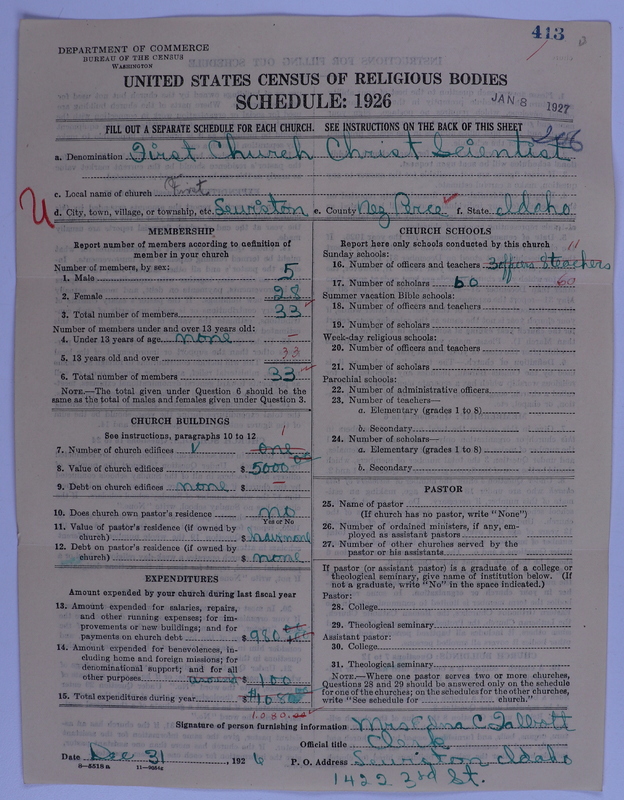 413
DEPARTMENT OF COMMERCE
BUREAU OF THE CENSUS
WASHINGTON
UNITED STATES CENSUS OF RELIGIOUS BODIES
SCHEDULE: 1926
JAN 8 1927
FILL OUT A SEPARATE SCHEDULE FOR EACH CHURCH. SEE INSTRUCTIONS ON THE BACK OF THIS SHEET
a. Denomination First Church Christ Scientist
c. Local name of church First
U
d. City, town, village, or township, etc. Lewiston e. County Nez Perce f. State Idaho
MEMBERSHIP
Report number of members according to definition of
member in your church
Number of members, by sex:
1. Male 5
2. Female 28
3. Total number of members 33
Number of members under and over 13 years old:
4. Under 13 years of age none –
5. 13 years old and over 33
6. Total number of members 33
NOTE.—The total given under Question 6 should be the
same as the total of males and females given under Question 3.
CHURCH BUILDINGS
See instructions, paragraphs 10 to 12 1
7. Number of church edifices one
8. Value of church edifices $ 5000 00
9. Debt on church edifices none $ –
10. Does church own pastor's residence no
Yes or No
11. Value of pastor's residence (if owned by
church) $ have none
12. Debt on pastor's residence (if owned by
church) $ none
EXPENDITURES
Amount expended by your church during last fiscal year
13. Amount expended for salaries, repairs,
and other running expenses; for im-
provements or new buildings; and for
payments on church debt $ 980
14. Amount expended for benevolences, in-
cluding home and foreign missions; for
denominational support; and for all
other purposes around $ 100
15. Total expenditures during year $ 1080
1080.00
CHURCH SCHOOLS
Report here only schools conducted by this church
Sunday schools: 11
16. Number of officers and teachers 3 officers 8 teachers
17. Number of scholars 60 60
Summer vacation Bible schools:
18. Number of officers and teachers
19. Number of scholars
Week-day religious schools:
20. Number of officers and teachers
21. Number of scholars
Parochial schools:
22. Number of administrative officers
23. Number of teachers—
a. Elementary (grades 1 to 8)
b. Secondary
24. Number of scholars—
a. Elementary (grades 1 to 8)
b. Secondary
PASTOR
25. Name of pastor
(If church has no pastor, write "None")
26. Number of ordained ministers, if any, em-
ployed as assistant pastors
27. Number of other churches served by the
pastor or his assistants
If pastor (or assistant pastor) is a graduate of a college or
theological seminary, give name of institution below. (If
not a graduate, write "No" in the space indicated.)
Pastor:
28. College
29. Theological seminary
Assistant pastor:
30. College
31. Theological seminary
NOTE.—Where one pastor serves two or more churches,
Questions 28 and 29 should be answered only on the schedule
for one of the churches; on the schedules for the other churches,
write "See schedule for church."
Signature of person furnishing information Mrs Edna C. Talbott
Official title Clerk
Date Dec 31, 1926 P. O. Address Lewiston Idaho
8—5518a 11—9054a 1422 3rd St.